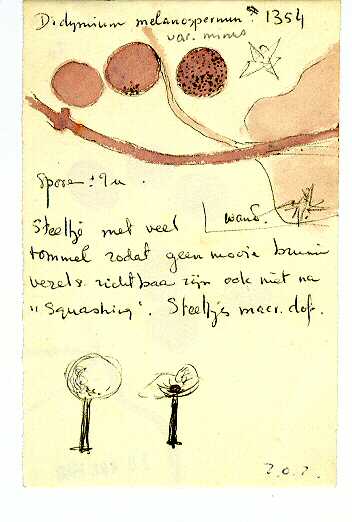 Didymium melanospermum? 1354
var. minus
Spore ± 9 u.
wand.
Steeltje met veel
rommel zodat geen mooie bruine
vezels zichtbaar zijn ook niet na
"Squashing". Steeltjes macr. dof.